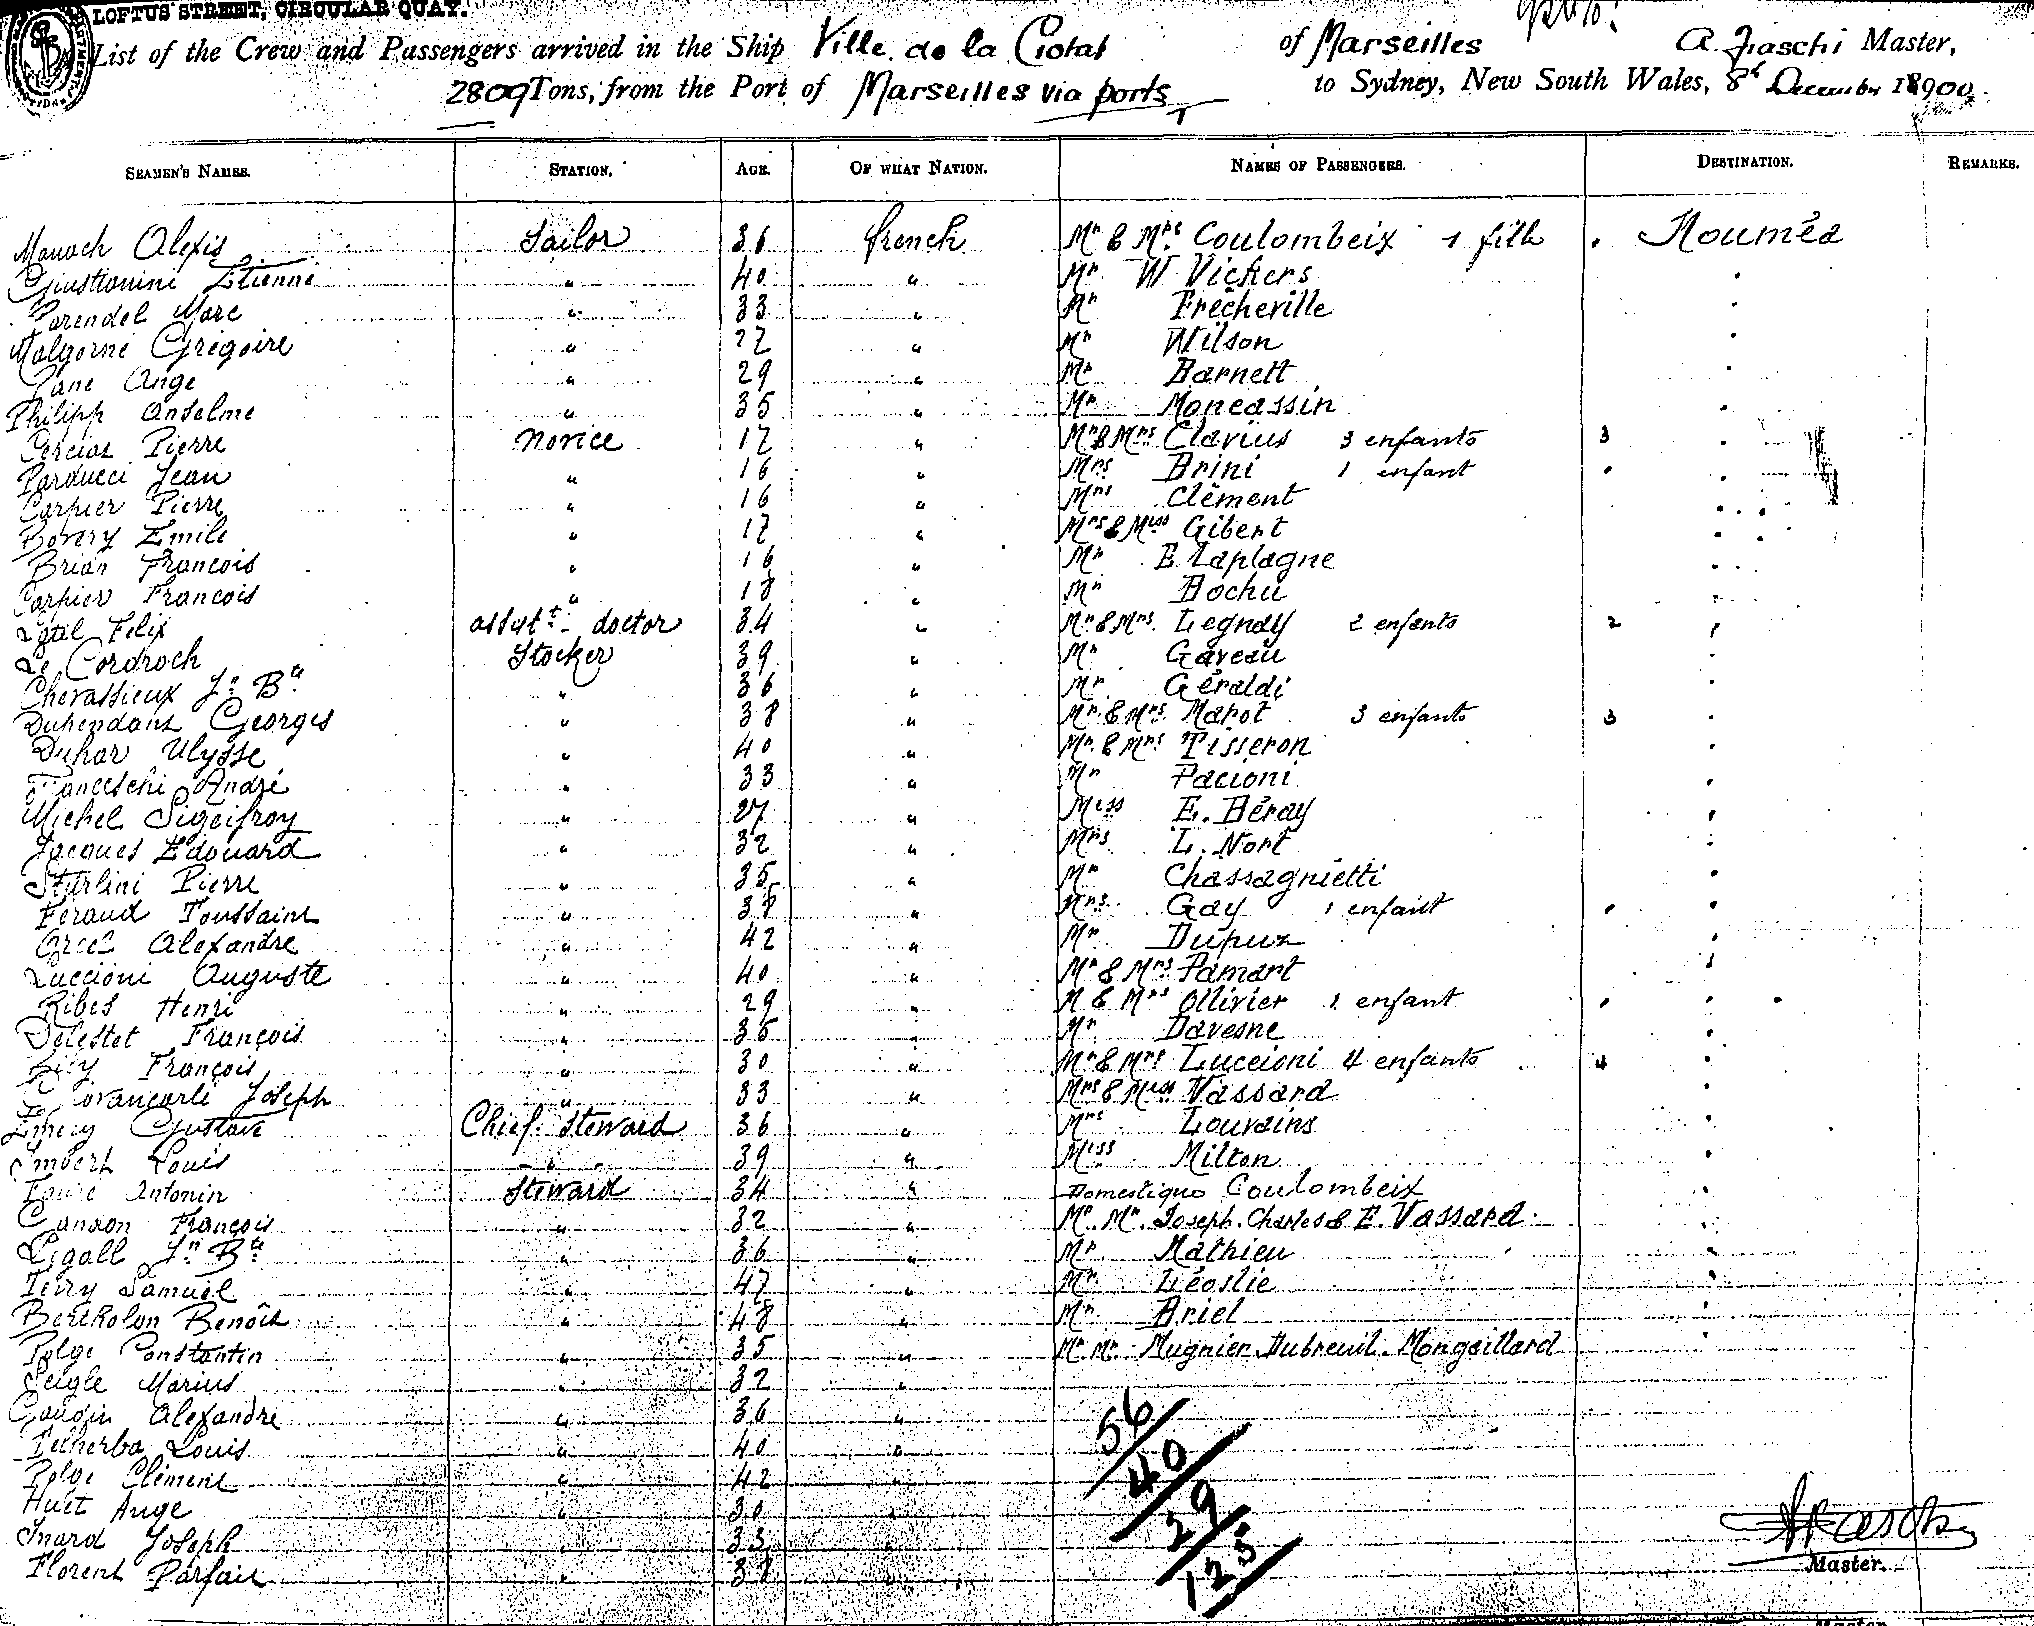 LOFTUS STREET, CIRCULAR QUAY.
List of the Crew and Passengers arrived in the Ship Ville de la Ciotat of Marseilles A. Fiaschi Master,
2809 Tons, from the Port of Marseilles via ports to Sydney, New South Wales, 8th December 18900
SEAMEN'S NAMES. STATION. AGE. OF WHAT NATION. NAMES OF PASSENGERS. DESTINATION. REMARKS.
Manach Alexis Sailor 36 french Mr & Mrs Coulombeix 1 fille Nouméa
Giustionini Etienne " 40 " Mr W Vickers
Parendel Marc " 33 " Mr Frécheville
Malgorne Grégoire " 22 " Mr Wilson
Pane Ange " 29 " Mr Barnett
Philipp Anselme " 35 " Mr Moncassin
Pierre Novice 17 " Mr & Mrs Clavius 3 enfants 3
Parducci Jean " 16 " Mrs Brini 1 enfant
Carpier Pierre " 16 " Mrs Clément
Bovery Emile " 17 " Mrs & Miss Gibert
Brian François " 16 " Mr E. Laplagne
Carpier François " 18 " Mr Bochu
Felix assist. doctor 34 " Mr & Mrs Legnay 2 enfants 2
Le Cordroch Stocker 39 " Mr Gaveau
Chevassieux Jn Bte " 36 " Mr Géraldi
Georges " 38 " Mr & Mrs Marot 3 enfants 3
Duhar Ulysse " 40 " Mr & Mrs Tisseron
Franceschi André " 33 " Mr Pacioni
Michel Sigeifroy " 27 " Miss E. Béray
Jacques Edouard " 32 " Mrs L. Nort
Sturlini Pierre " 35 " Mr Chassagnietti
Feraud Toussaint " 38 " Mrs Gay 1 enfant
Alexandre " 42 " Mr Dupuz
Luccioni Auguste " 40 " Mr & Mrs Pamart
Ribes Henri " 29 " M & Mrs Ollivier 1 enfant
Delestet François " 35 " Mr Davesne
François " 30 " Mr & Mrs Luccioni 4 enfants 4
Joseph " 33 " Mrs & Miss Vassard
Emery Gustave Chief Steward 36 " Mrs Louvains
Imbert Louis " 39 " Miss Milton
Faure Antonin Steward 34 " Domestique Coulombeix
Candon François " 32 " Mr. Mr. Joseph. Charles & E. Vassard
Ligall Jn Bte " 36 " Mr Mathieu
Terry Samuel " 47 " Mr Léoslie
Bertholon Benôit " 48 " Mr Briel
Polge Constantin " 35 " Mr Mr Mugnier. Dubreuil. Mongaillard
Seigle Marius " 32 "
Gaudin Alexandre " 36 "
Louis " 40 "
Polge Clément " 42 "
Huet Ange " 30 "
Inard Joseph " 33 "
Florent Parfait " 38 "
56
40
29
125
Master.